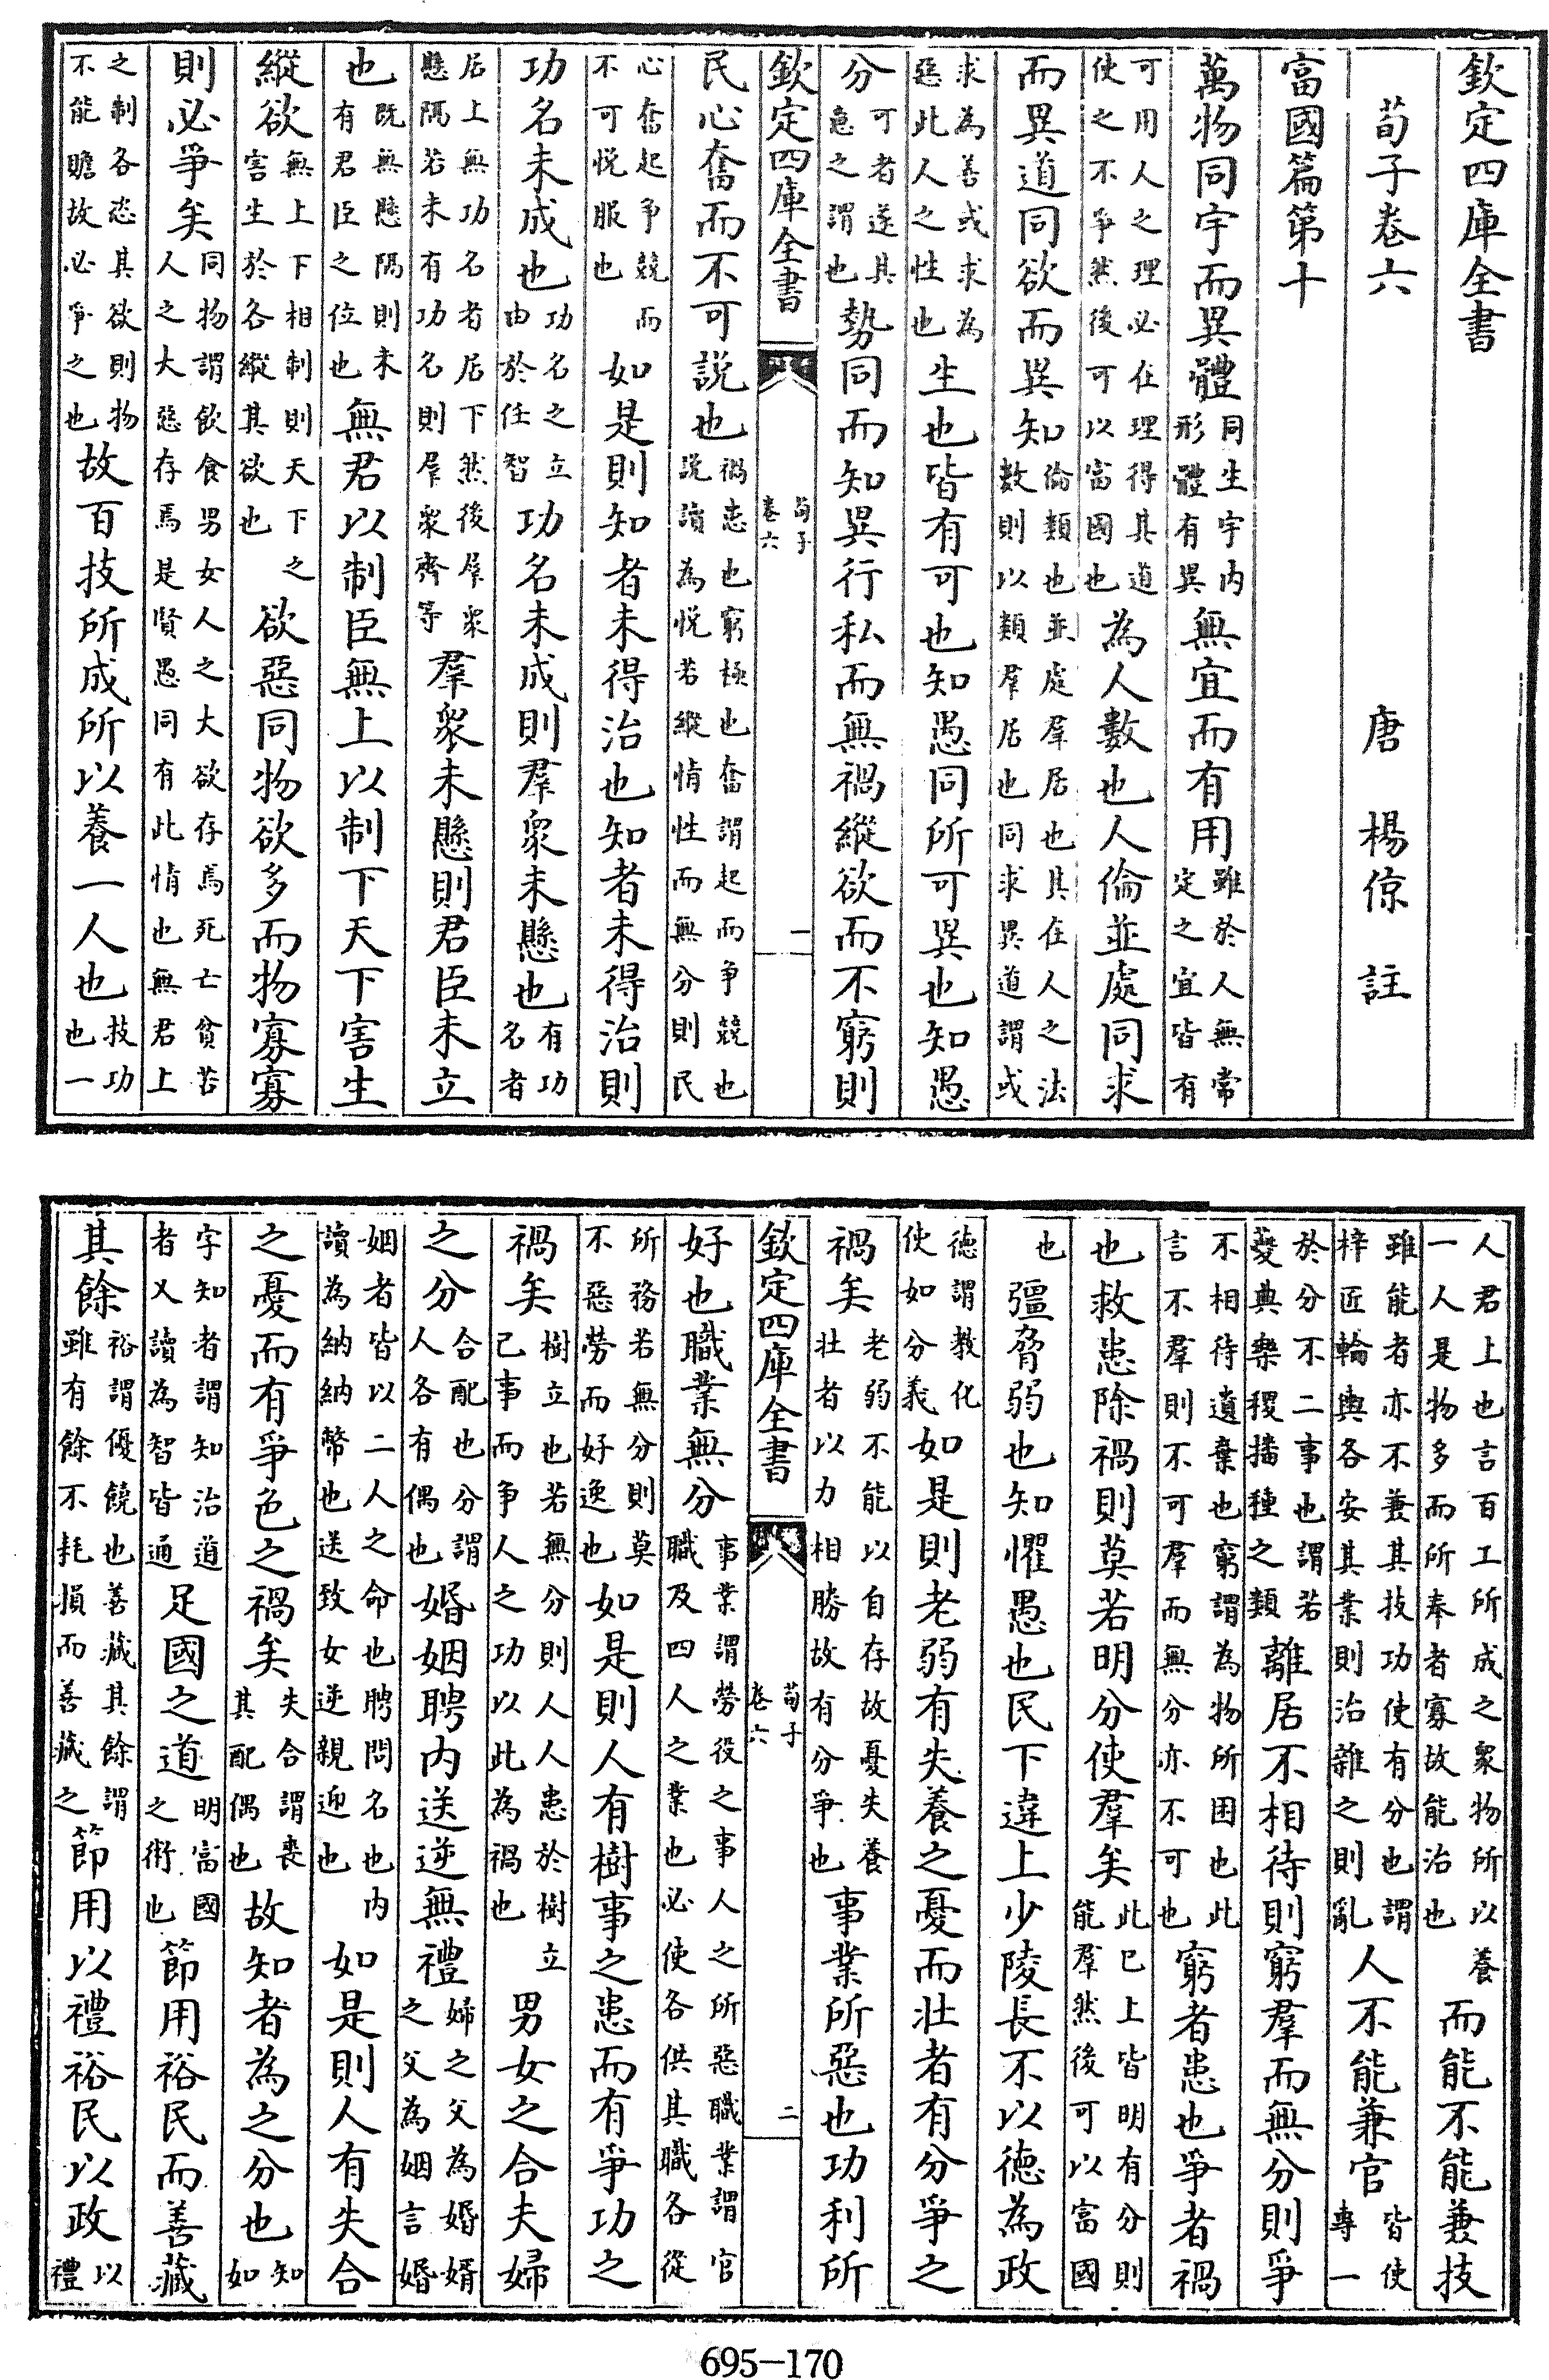 欽定四庫全書
荀子卷六
唐 楊倞 註
富國篇第十
萬物同宇而異體同生宇内形體有異無宜而有用雖於人無常定之宜皆有
可用人之理必在理得其道使之不爭然後可以富國也為人數也人倫並處同求
而異道同欲而異知倫類也並處羣居也其在人之法數則以類羣居也同求異道謂或
求為善或求為惡此人之性也生也皆有可也知愚同所可異也知愚
分可者遂其意之謂也勢同而知異行私而無禍縱欲而不窮則
欽定四庫全書
荀子
卷六
一
民心奮而不可說也禍患也窮極也奮謂起而爭競也說讀為悦若縱情性而無分則民
心奮起爭競而不可悦服也如是則知者未得治也知者未得治則
功名未成也功名之立由於任智功名未成則羣衆未懸也有功名者
居上無功名者居下然後羣衆懸隔若未有功名則羣衆齊等羣衆未懸則君臣未立
也既無懸隔則未有君臣之位也無君以制臣無上以制下天下害生
縱欲無上下相制則天下之害生於各縱其欲也欲惡同物欲多而物寡寡
則必爭矣同物謂飲食男女人之大欲存焉死亡貧苦人之大惡存焉是賢愚同有此情也無君上
之制各恣其欲則物不能贍故必爭之也故百技所成所以養一人也技功也一
人君上也言百工所成之衆物所以養一人是物多而所奉者寡故能治也而能不能兼技
雖能者亦不兼其技功使有分也謂梓匠輪輿各安其業則治雜之則亂人不能兼官皆使專一
於分不二事也謂若夔典樂稷播種之類離居不相待則窮羣而無分則爭
不相待遺棄也窮謂為物所困也此言不羣則不可羣而無分亦不可也窮者患也爭者禍
也救患除禍則莫若明分使羣矣此已上皆明有分則能羣然後可以富國
也彊脅弱也知懼愚也民下違上少陵長不以德為政
德謂教化使如分義如是則老弱有失養之憂而壯者有分爭之
禍矣老弱不能以自存故憂失養壯者以力相勝故有分爭也事業所惡也功利所
欽定四庫全書
荀子
卷六
二
好也職業無分事業謂勞役之事人之所惡職業謂官職及四人之業也必使各供其職各從
所務若無分則莫不惡勞而好逸也如是則人有樹事之患而有爭功之
禍矣樹立也若無分則人人患於樹立己事而爭人之功以此為禍也男女之合夫婦
之分合配也分謂人各有偶也婚姻聘内送逆無禮婦之父為婚婿之父為姻言婚
姻者皆以二人之命也聘問名也内讀為納納幣也送致女逆親迎也如是則人有失合
之憂而有爭色之禍矣失合謂喪其配偶也故知者為之分也知如
字知者謂知治道者又讀為智皆通足國之道明富國之術也節用裕民而善藏
其餘裕謂優饒也善藏其餘謂雖有餘不耗損而善藏之節用以禮裕民以政以禮
695-170